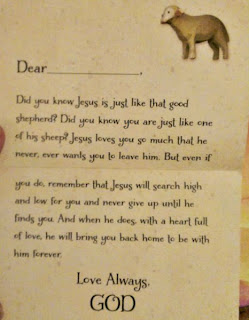 Dear____________,
Did you know Jesus is just like that good
shepherd? Did you know you are just like one
of his sheep? Jesus loves you so much that he
never, ever wants you to leave him. But even if
you do, remember that Jesus will search high
and low for you and never give up until he
finds you. And when he does, with a heart full
of love, he will bring you back home to be with
him forever.
Love Always,
GOD